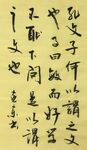 孔文子何以謂之文
也子曰敏而好學
不恥下問是以謂
之文也